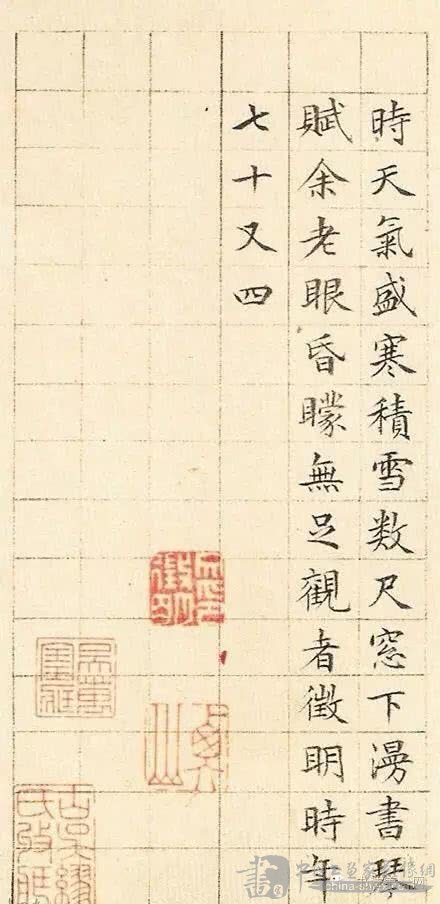 時天氣盛寒積雪数尺窓下漫書琴
賦余老眼昏矇無足觀者徵明時年
七十又四
徵明